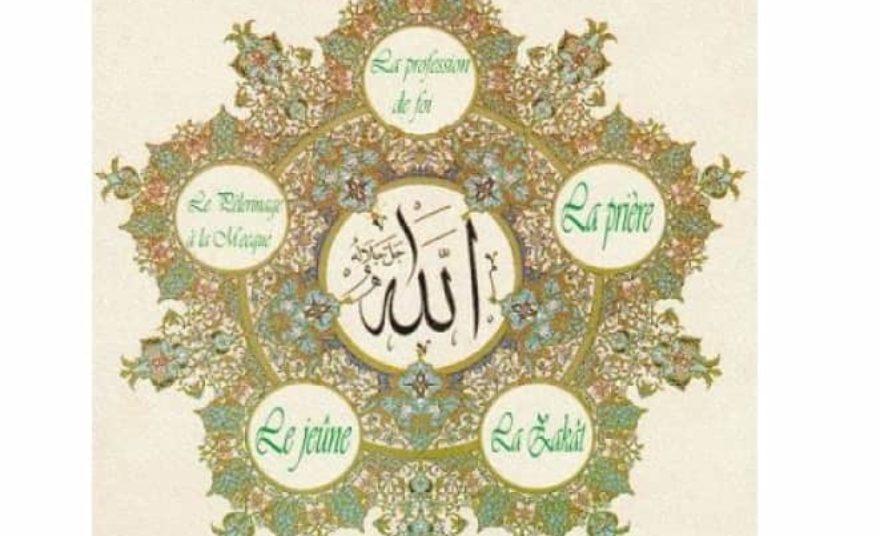 La profession
de foi
Le Pélerimage
à la Mecque
La prière
الله
جل جلاله
Le jeûne
La Zakât